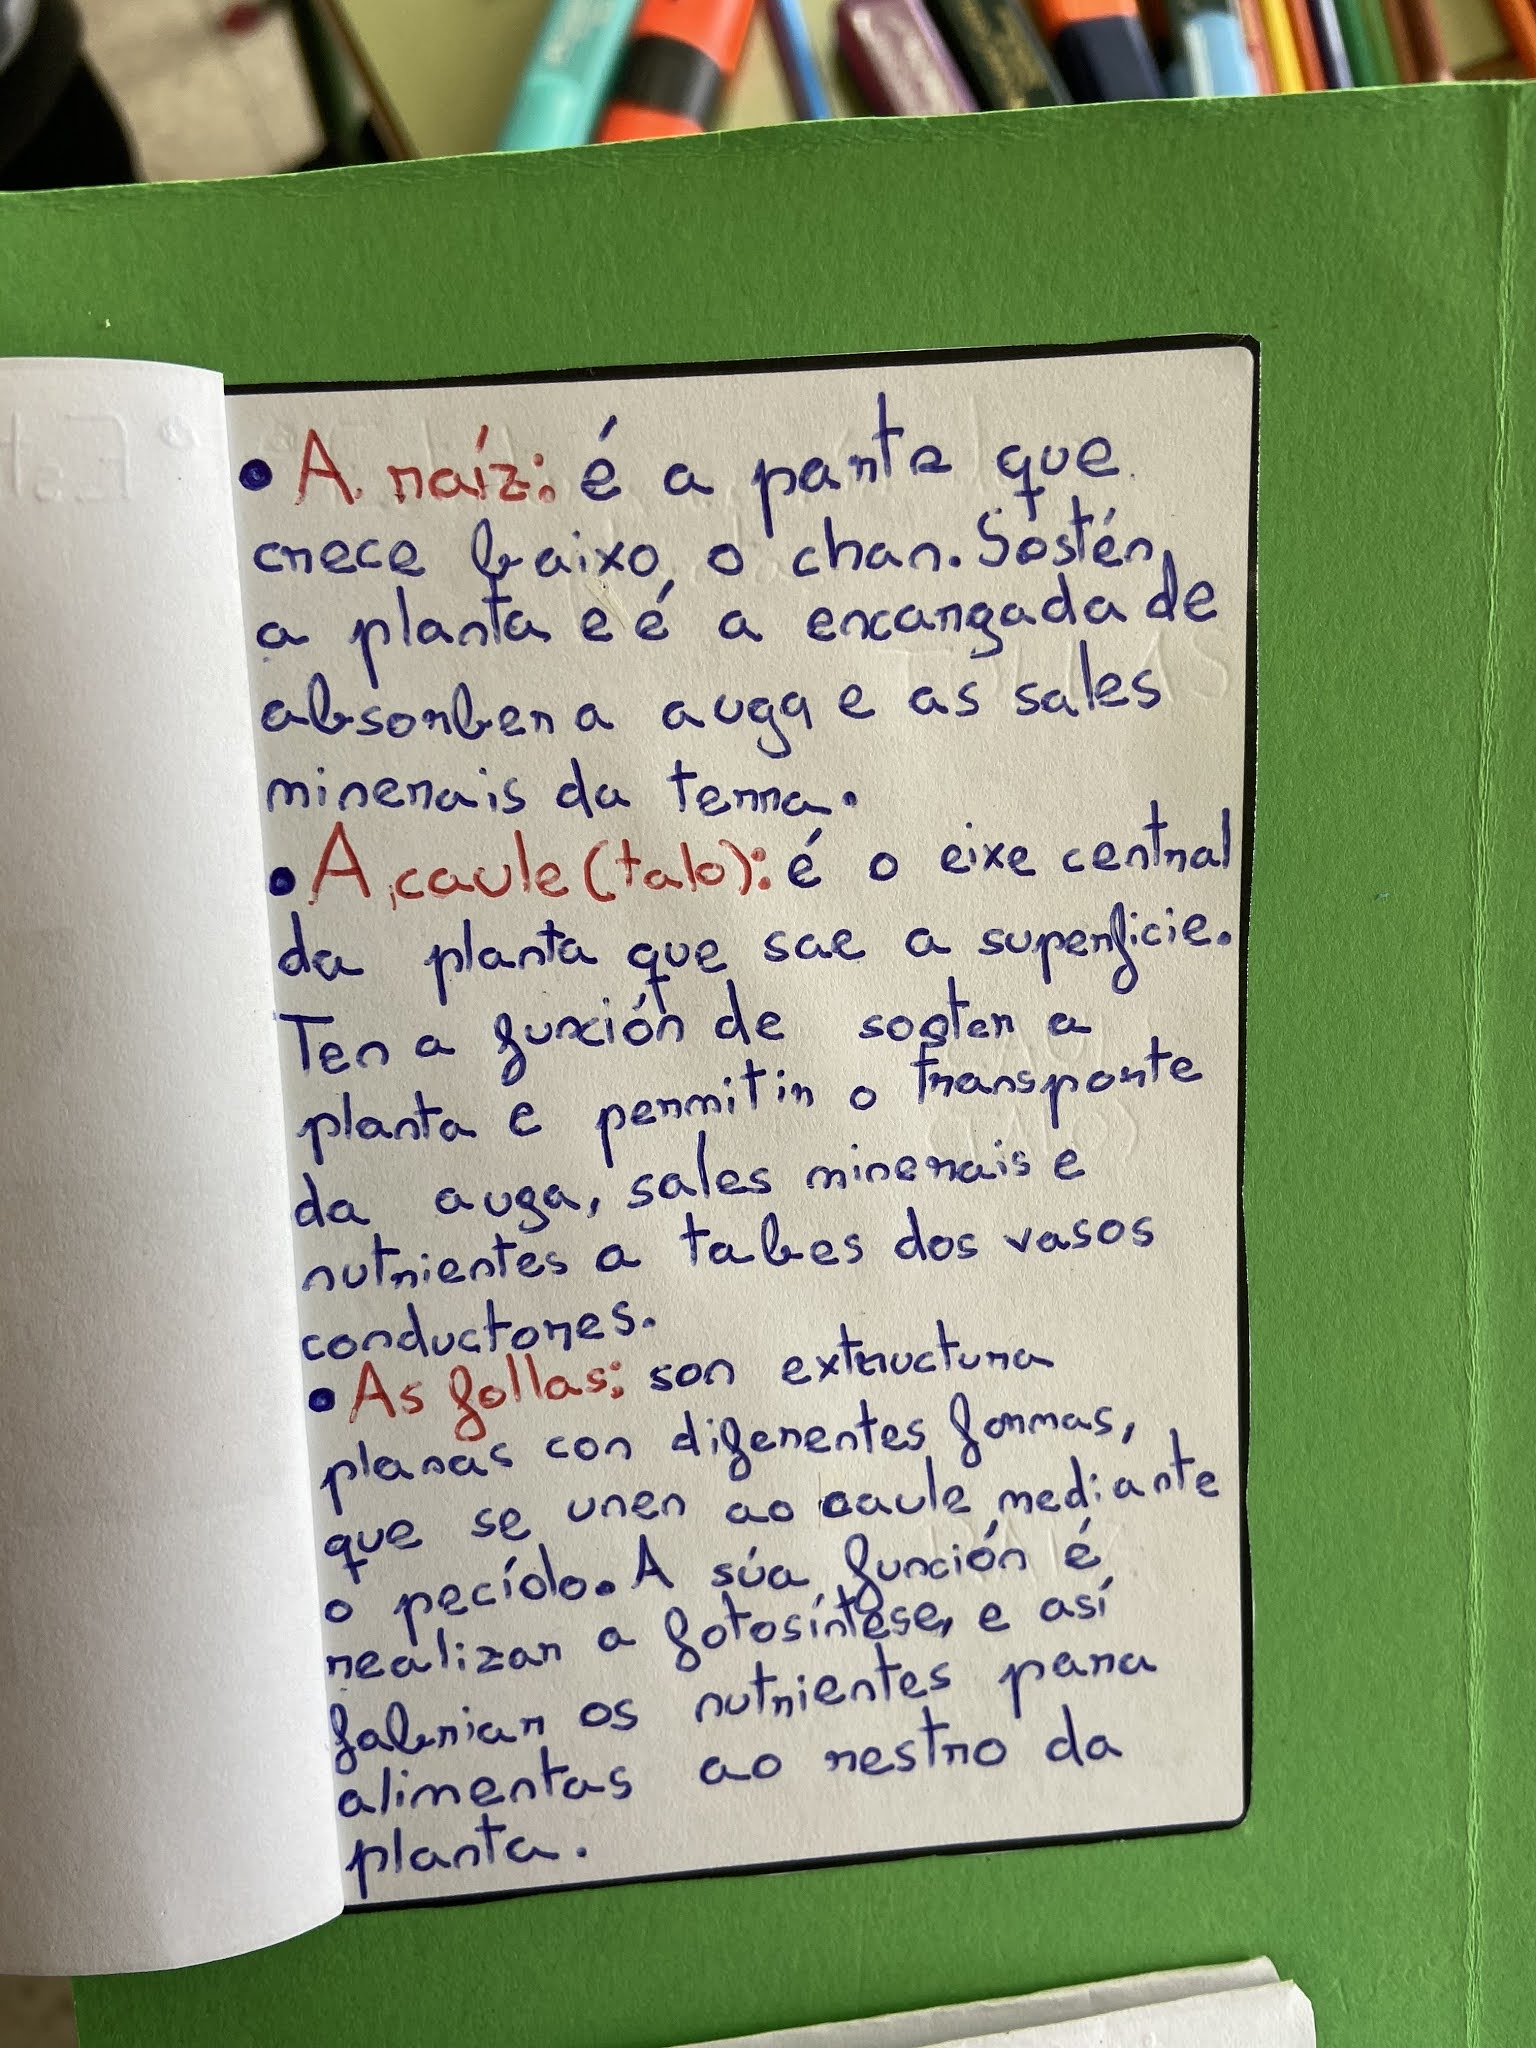 • A raíz: é a parte que
crece baixo o chan. Sostén
a planta e é a encargada de
absorber a auga e as sales
minerais da terra.
• A caule (talo): é o eixe central
da planta que sae a superficie.
Ten a función de soster a
planta e permitir o transporte
da auga, sales minerais e
nutrientes a tabes dos vasos
conductores.
• As follas: son extructura
planas con diferentes formas,
que se unen ao caule mediante
o pecídlo. A súa función é
realizar a fotosíntese, e así
fabriar os nutrientes para
alimentas ao restro da
planta.